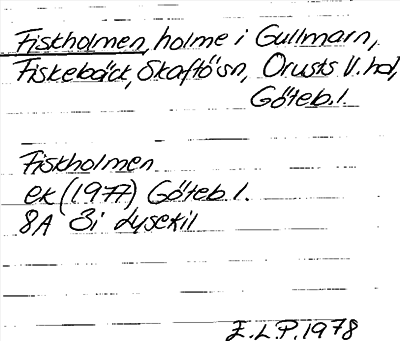 Fiskholmen, holme i Gullmarn,
Fiskebäck, Skaftö sn, Orusts V. hd,
Göteb. l.
Fiskholmen
ek (1977) Göteb. l.
8A Si Lysekil
E.L.P. 1978